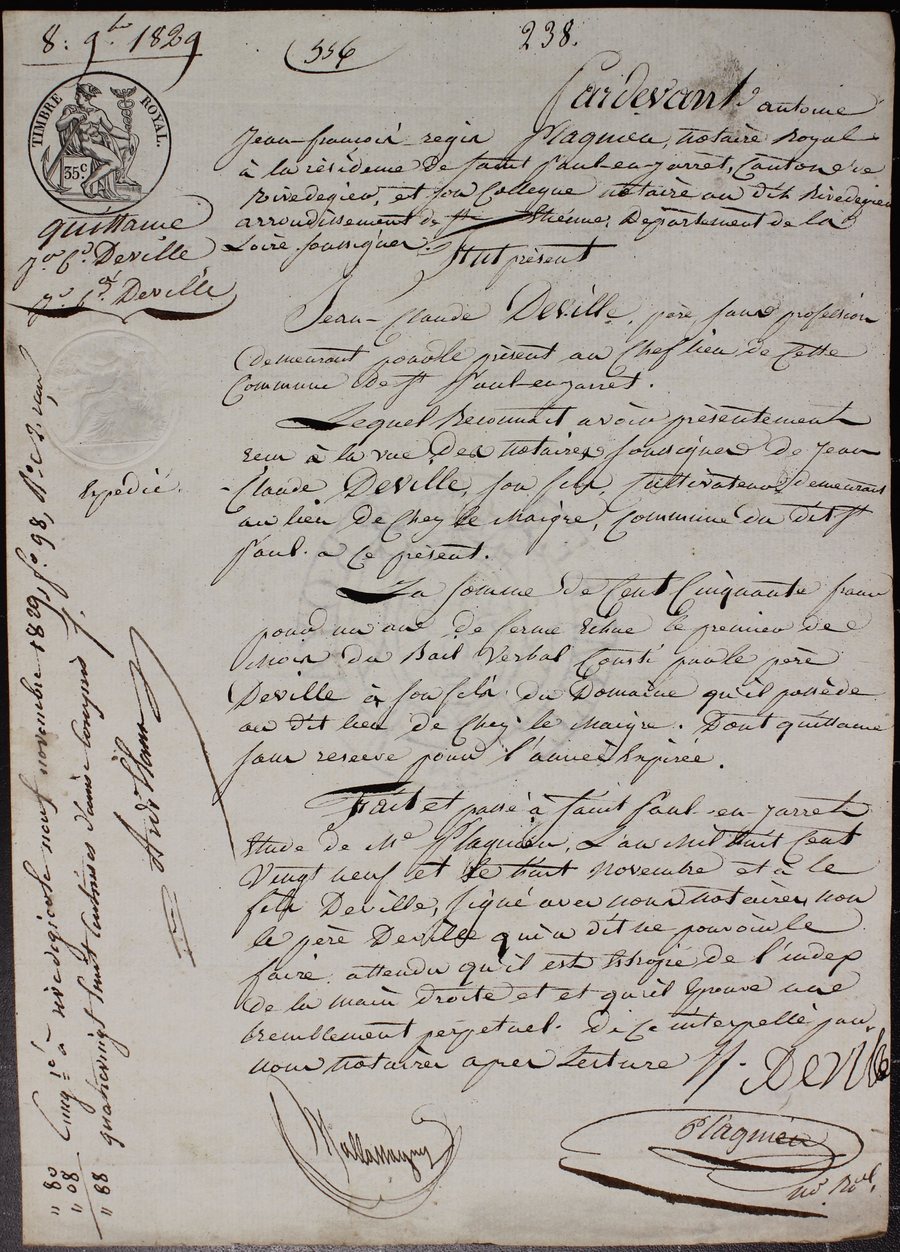 8: 9bre 1829
556
238.
TIMBRE ROYAL.
35c
quittance
jn Cde Deville
jn Cde Deville
Expédié.
Pardevant antoine
Jean-françois-regis Plagnieu, notaire Royal
à la résidence De saint Paul-en-jarret, Canton de
Rivedegier, et son Collegue notaire au dit Rivedegier
arrondissement de St Etienne, Département de la
Loire soussignés.
Fut présent
Jean-Claude Deville, père sans profession
demeurant pour le présent au Cheflieu de Cette
Commune de St Paul-en-jarret.
Lequel Reconnait avoir présentement
recu à la vue Des notaires soussignés de Jean
-Claude Deville, son fils, Cultivateur, demeurant
au lieu de Chez le Maigre, Commune du dit St
Paul. a ce présent.
La somme de Cent Cinquante francs
pour un an de ferme Echue le premier de ce
mois du Bail Verbal Consti par le père
Deville à son fils du Domaine qu'il possède
au dit lieu de Chez le Maigre. Dont quittance
sans reserve pour l'année Expirée.
Fait et passé à saint Paul-en-jarret
Etude de Me Plagnieu, L'an Mil huit Cent
Vingt neuf et le huit Novembre et a le
fils Deville, signé avec nous notaires, non
le père Deville qui a dit ne pouvoir le
faire attendu qu'il est Estropié de l'index
de la main droite et et qu'il Eprouve une
tremblement perpetuel. De Ce interpellé par
nous notaires apres Lecture
J- Deville
Plagnieu
no. Roal.
Enrg.ié à rivedegier le neuf novembre 1829, fo. 98, Ro. c. 2. reçu
quatrevingt huit Centimes dixième compris
" 80
" 08
" 88